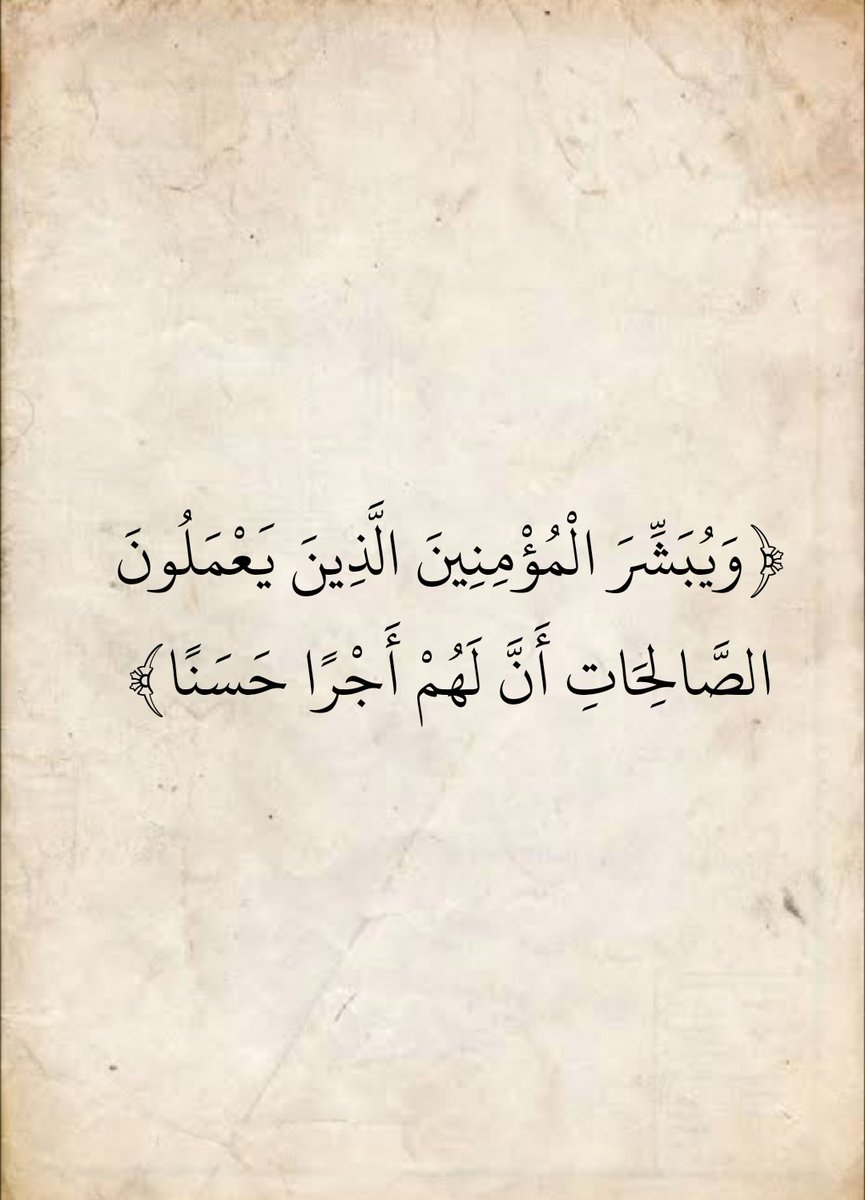 ﴿وَيُبَشِّرَ الْمُؤْمِنِينَ الَّذِينَ يَعْمَلُونَ
الصَّالِحَاتِ أَنَّ لَهُمْ أَجْرًا حَسَنًا﴾